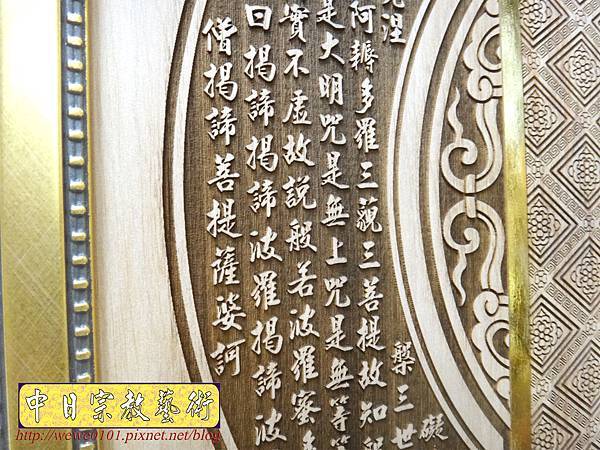 礙
涅
槃三世
阿耨多羅三藐三菩提故知般
是大明咒是無上咒是無等
實不虛故說般若波羅蜜多
曰揭諦揭諦波羅揭諦波
僧揭諦菩提薩婆訶
中日宗教藝術
http://wewe0101.pixnet.net/blog